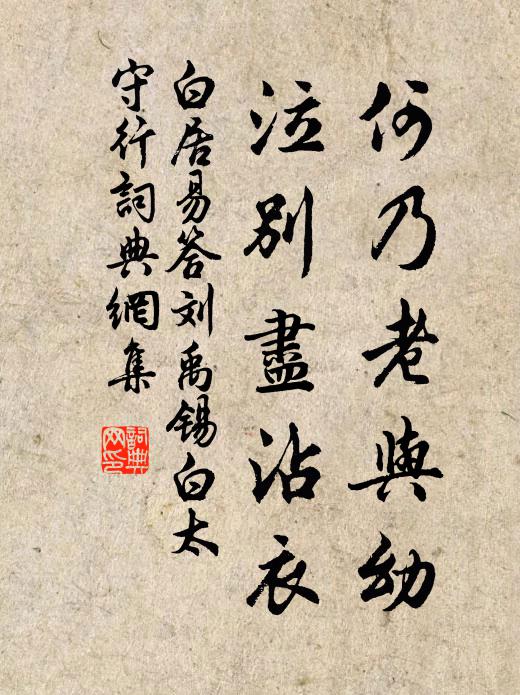 何乃老與幼
泣別盡沾衣
白居易答刘禹锡白太
守行詞典網集
詞典
网印